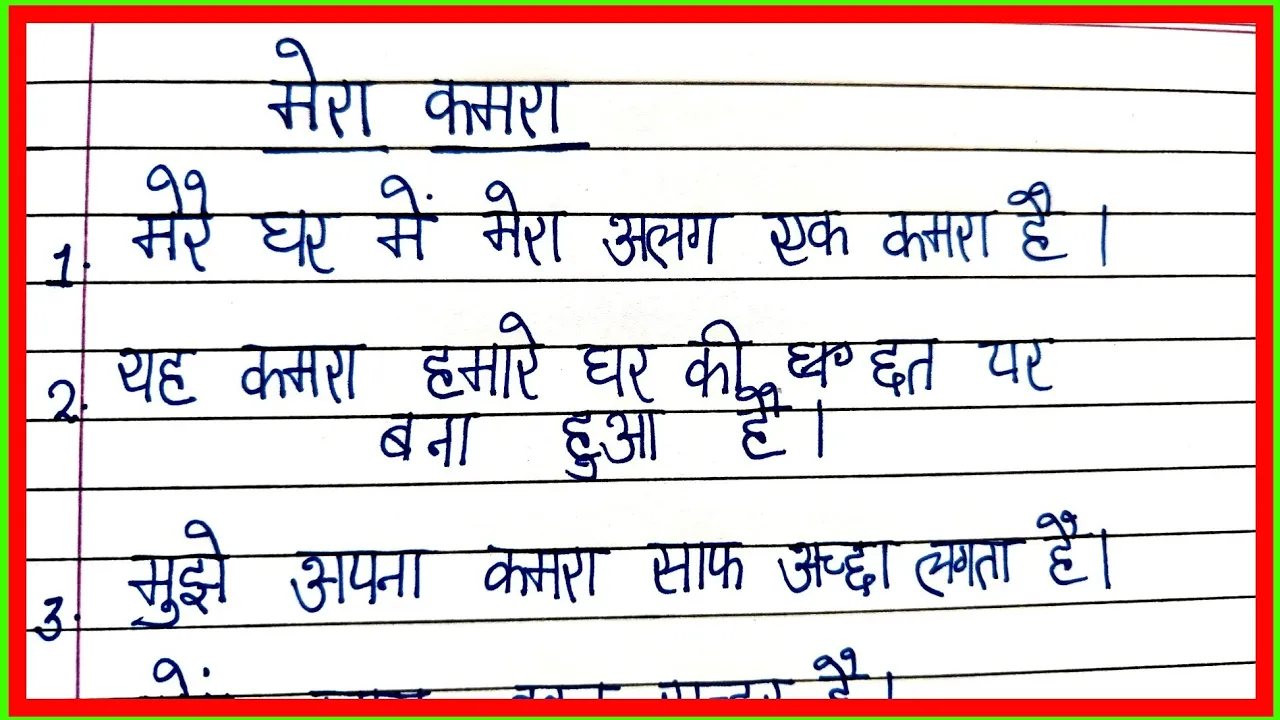 मेरा कमरा
1. मेरे घर में मेरा अलग एक कमरा है।
2. यह कमरा हमारे घर की छत पर
बना हुआ है।
3. मुझे अपना कमरा साफ अच्छा लगता है।
है।